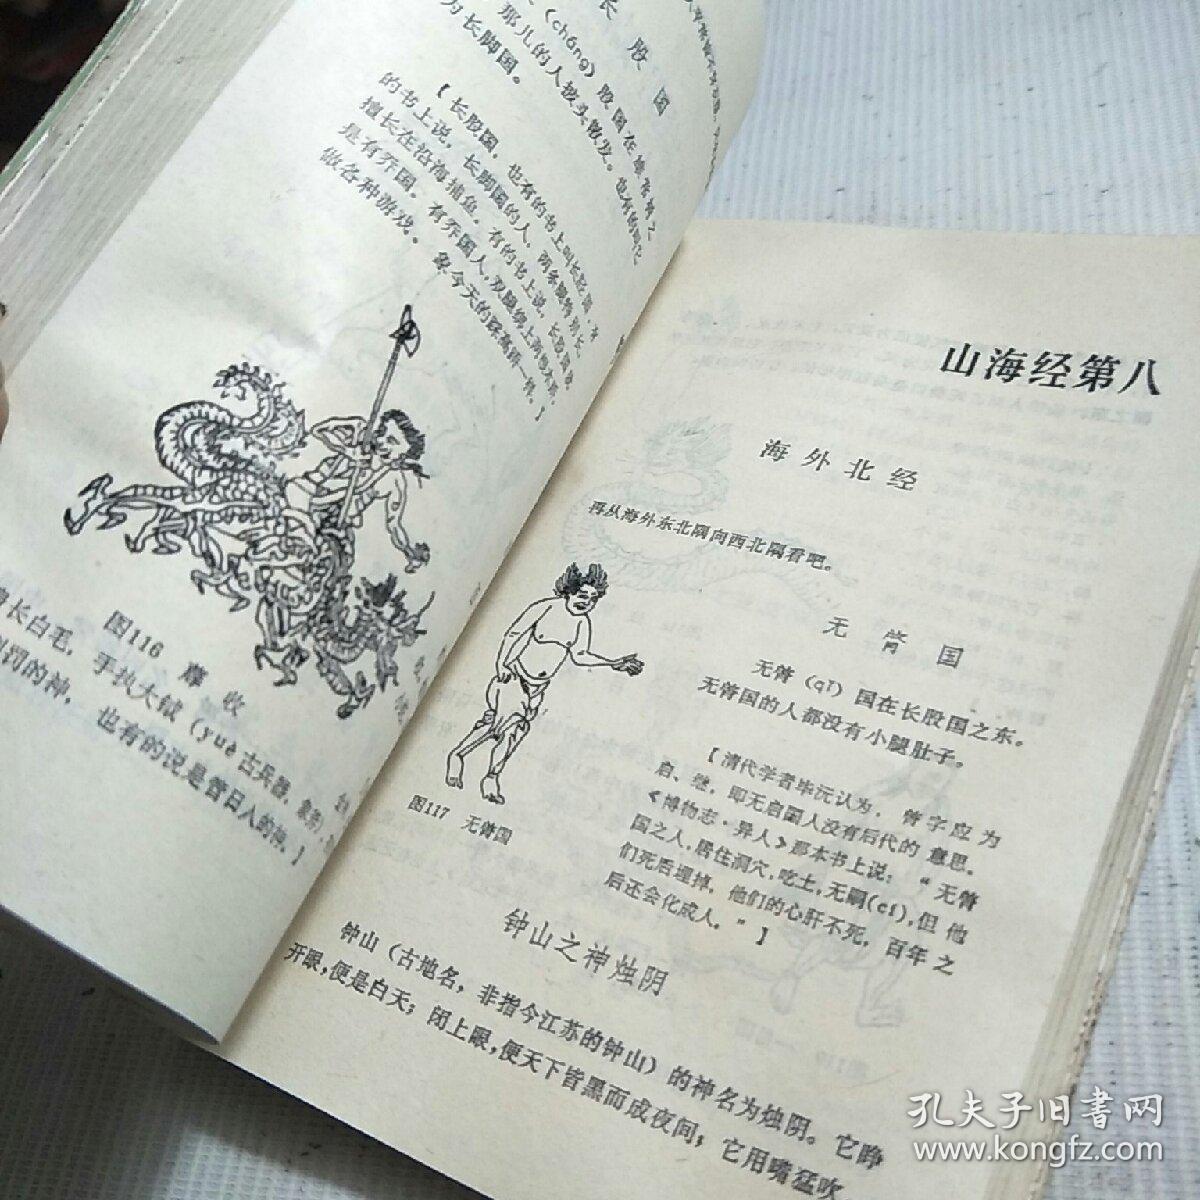 长 股 国
(cháng) 股国在
那儿的人披头散发。也有的叫它
为长脚国。
【长股国, 也有的书上叫长脚国,有
的书上说, 长脚国的人, 两条腿特别长
擅长在沿海捕鱼。有的书上说, 长股国就
是有乔国。有乔国人, 双腿绑上两根木棍,
做各种游戏。象今天的踩高跷一样。】
图116 蓐 收
长白毛, 手执大钺 (yuè古兵器,
罚的神, 也有的说是管日入的神。】
山海经第八
海外北经
再从海外东北隅向西北隅看吧。
无 膋 国
无膋 (qǐ) 国在长股国之东。
无膋国的人都没有小腿肚子。
【清代学者毕沅认为, 膋字应为
启、继, 即无启国人没有后代的 意思。
《博物志·异人》那本书上说: “ 无膋
国之人,居住洞穴, 吃土, 无嗣(cí),但 他
们死后埋掉, 他们的心肝不死, 百年 之
后还会化成人。”】
图117 无膋国
钟山之神烛阴
钟山 (古地名, 非指今江苏的钟山) 的神名为烛阴。它睁
开眼,便是白天; 闭上眼,便天下皆黑而成夜间; 它用嘴猛吹,
孔夫子旧书网
www.kongfz.com